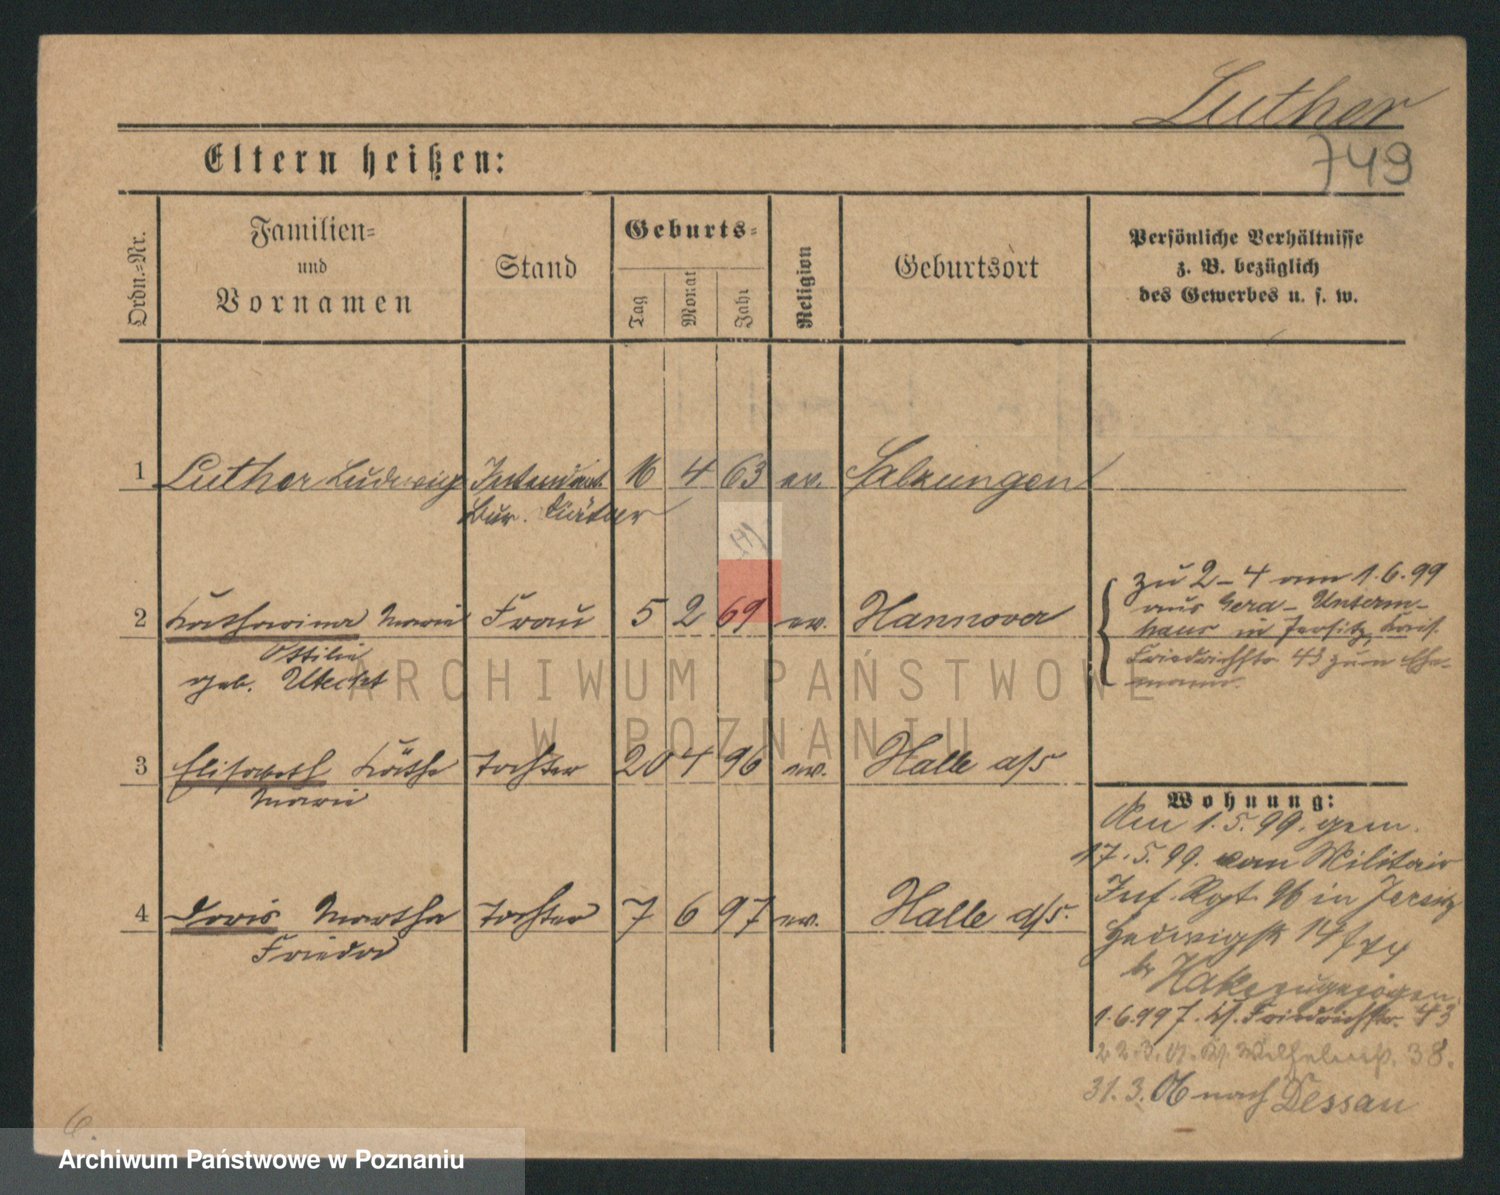 Luther
749
Eltern heißen:
Ordn.-Nr.
Familien-
und
Vornamen
Stand
Geburts-
Tag
Monat
Jahr
Religion
Geburtsort
Persönliche Verhältnisse
z. B. bezüglich
des Gewerbes u. s. w.
1 Luther Ludwig Intendant. 16 4 63 ev. Salzungen
Bur. Diätar
2 Katharina Marie Frau 5 2 69 ev. Hannover
Ottilie
geb. Utecht
zu 2-4 am 1.6.99
aus Gera-Unterm-
haus in Jersitz, Kais.
Friedrichstr 43 zum Ehe-
mann.
3 Elisabeth Käthe Tochter 20 4 96 ev. Halle a/S
Marie
4 Doris Martha Tochter 7 6 97 ev. Halle a/S.
Frieda
Wohnung:
Am 1.5.99. gem.
17.5.99. vom Militair
Inf. Rgt. 96 in Jersitz
Hedwigstr 14
bei Hake zugezogen.
1.6.99 Friedrichstr. 43
22.3. 38.
31.3.06 nach Dessau
6.
ARCHIWUM PAŃSTWOWE
W POZNANIU
Archiwum Państwowe w Poznaniu